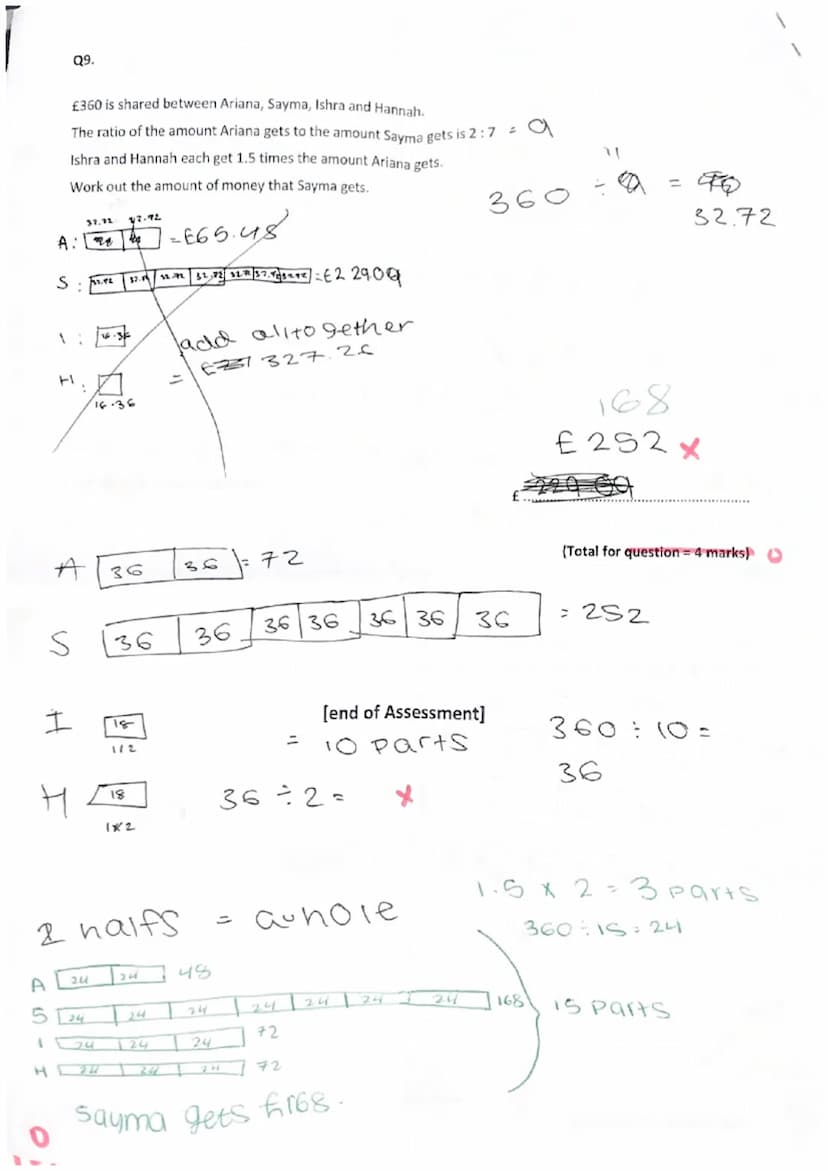 Q9.
£360 is shared between Ariana, Sayma, Ishra and Hannah.
The ratio of the amount Ariana gets to the amount Sayma gets is 2 : 7 = 9
Ishra and Hannah each get 1.5 times the amount Ariana gets.
Work out the amount of money that Sayma gets.
11
360 ÷ =
32.72
32.72 32.72
A: = £65.48
S: 32.72 32.72 32.72 32.72 32.72 32.72 = £229.09
I: 16.36
add alltogether
= 327.26
H:
16.36
168
£252 x
£
(Total for question = 4 marks) 0
A 36 36 = 72
S 36 36 36 36 36 36 36 = 252
[end of Assessment]
I 18
1/2
= 10 parts
360 ÷ 10 =
36
H 18
36 ÷ 2 = x
2 halfs = a whole
1.5 x 2 = 3 parts
360 ÷ 15 = 24
A 24 24 48
S 24 24 24 24 24 24 24 168
15 parts
I 24 24 24 72
H 24 24 24 72
Sayma gets £168.
0